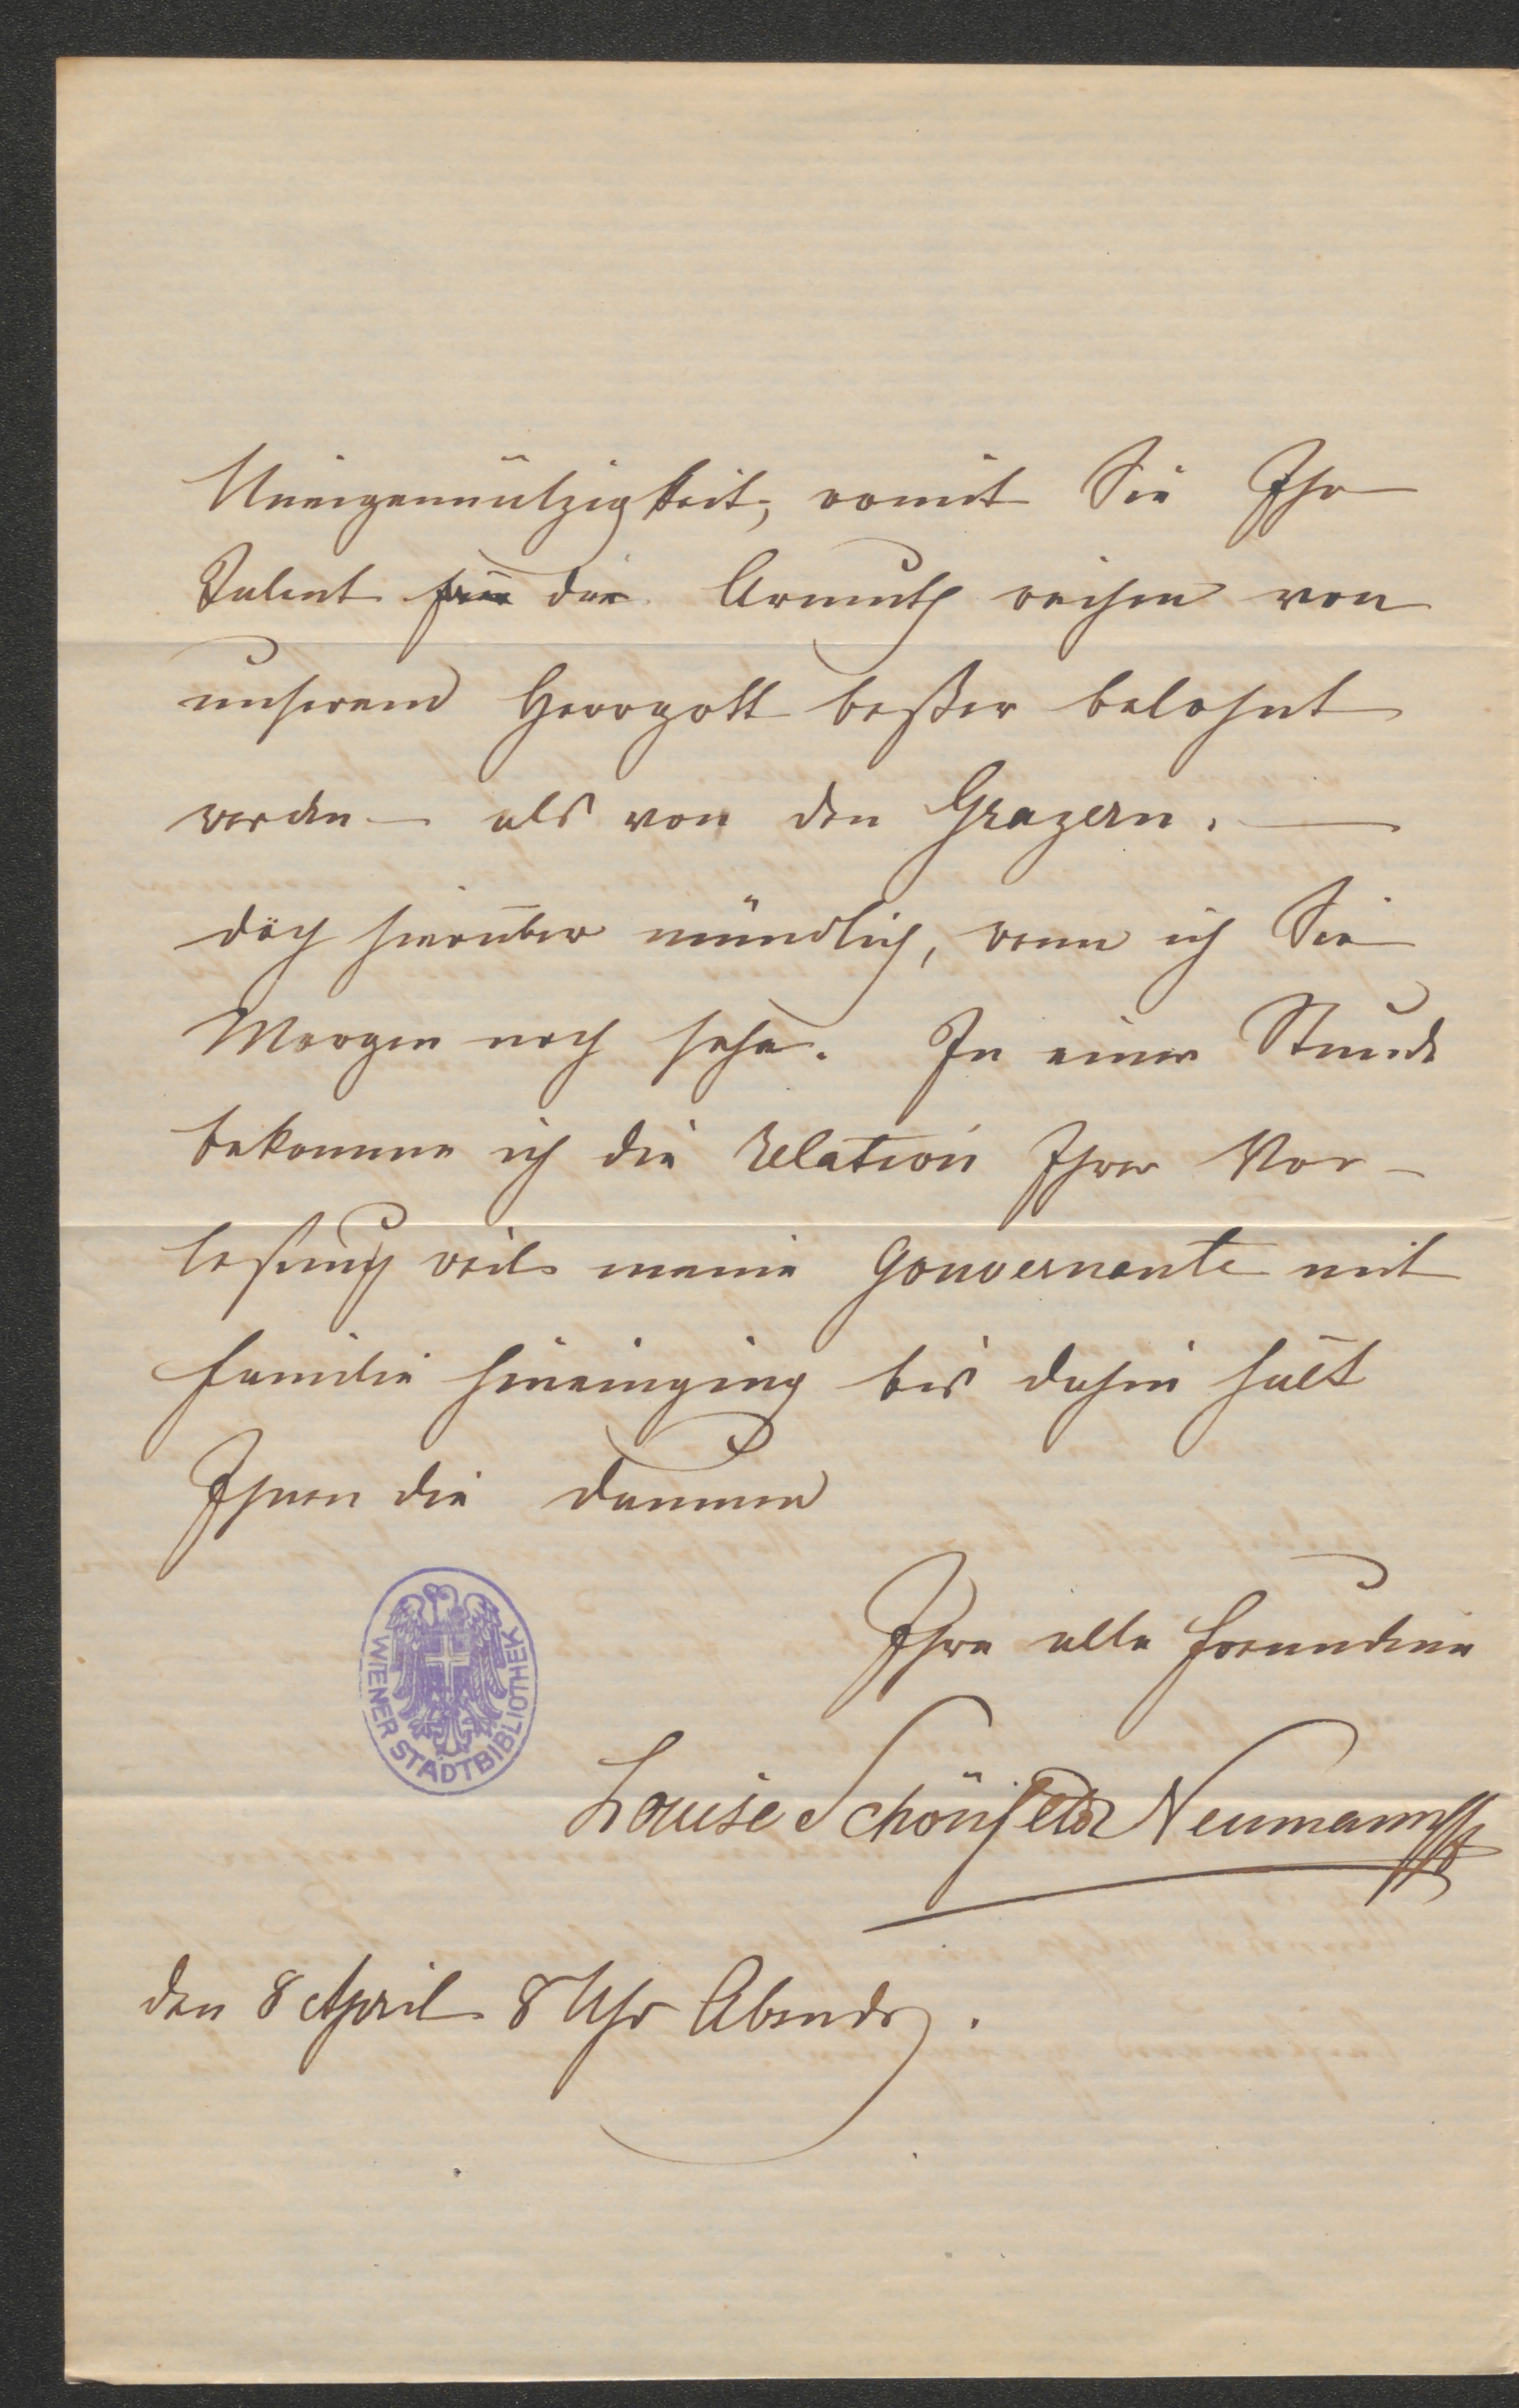 Uneigennützigkeit, womit Sie Ihr
Talent für die Armuth weihen von
unserem Herrgott beßer belohnt
werden – als von den Grazern. —
doch hierüber mündlich, wenn ich Sie
Morgen noch sehe. In einer Stunde
bekomme ich die Relation Ihrer Vor-
lesung weil meine Gouvernante mit
Familie hineinging bis dahin hält
Ihnen die Daumen
Ihre alte Freundinn
Louise Schönfeld Neumann
den 8 April 8 Uhr Abends.
WIENER STADTBIBLIOTHEK